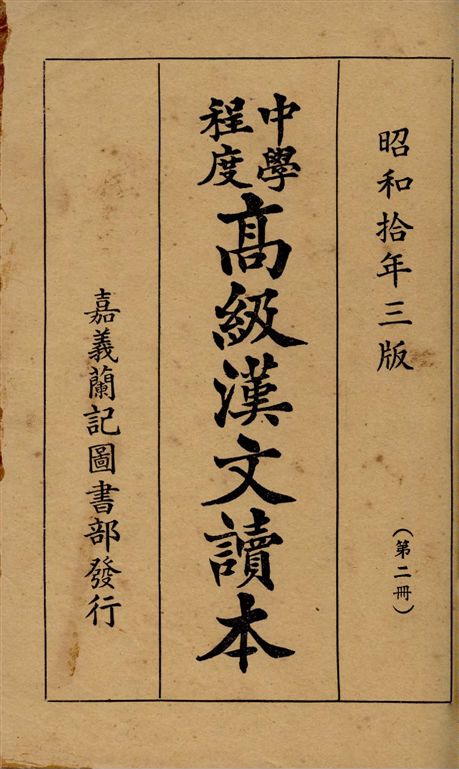 昭和拾年三版
(第二冊)
中學
程度
高級漢文讀本
嘉義蘭記圖書部發行